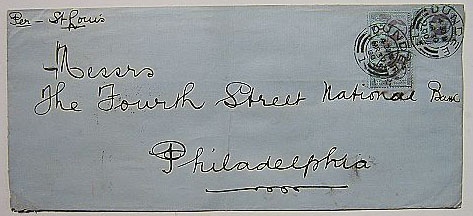 Per - St Louis
DUNDEE
DUNDEE
Messrs
The Fourth Street National Bank
Philadelphia